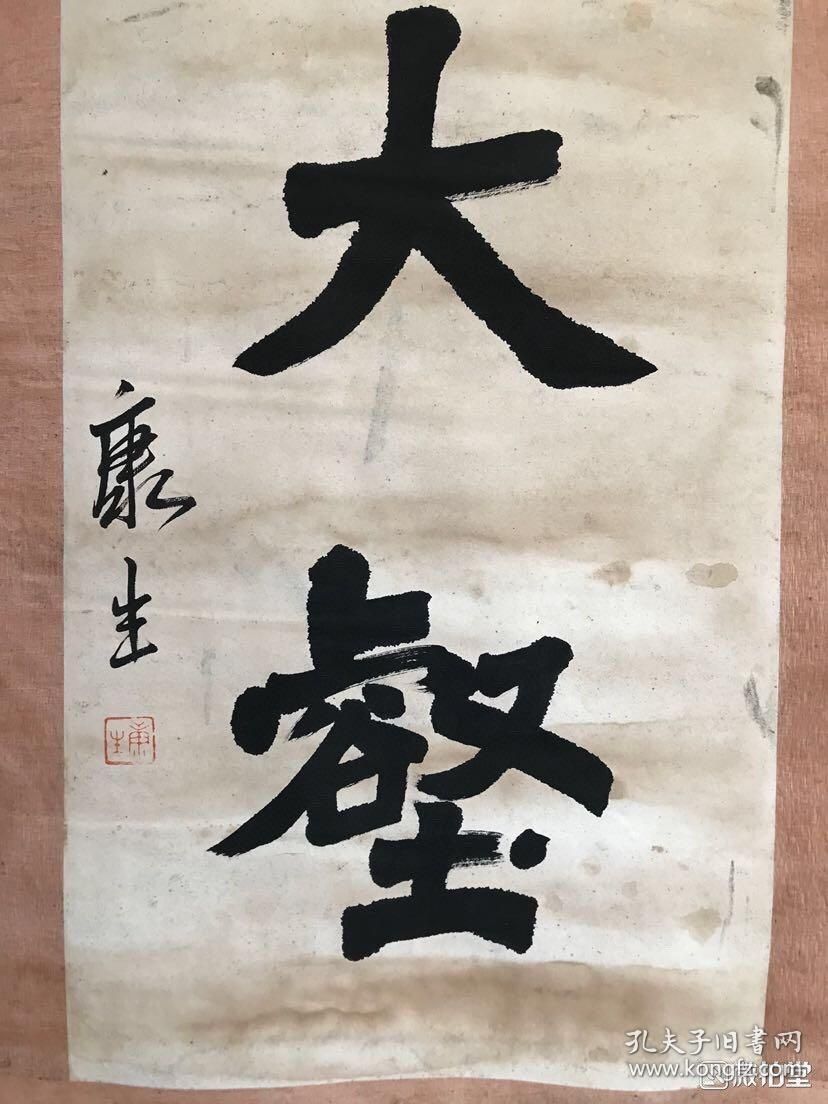 大壑
康生
康生
孔夫子旧书网
www.kongfz.com
微拍堂